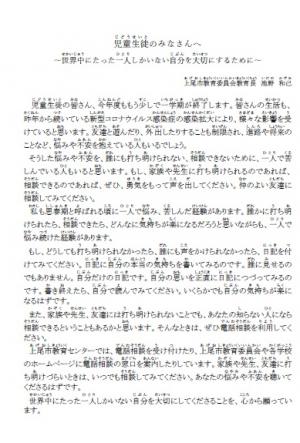 児童生徒のみなさんへ
～世界中にたった一人しかいない自分を大切にするために～
上尾市教育委員会教育長　池野　和己
児童生徒の皆さん、今年度ももう少しで一学期が終了します。皆さんの生活も、
昨年から続いている新型コロナウイルス感染症の感染拡大により、様々な影響を受
けていると思います。友達と遊んだり、外出したりすることも制限され、進路や将来の
ことなど、悩みや不安を抱えている人もいるでしょう。
そうした悩みや不安を、誰にも打ち明けられない、相談できないために、一人で苦
しんでいる人もいると思います。もし、家族や先生に打ち明けられるのであれば、
相談できるのであれば、ぜひ、勇気をもって声を出してください。仲のよい友達に
相談してみてください。
私も思春期と呼ばれる頃に一人で悩み、苦しんだ経験があります。誰かに打ち明け
られたら、相談できたら、どんなに気持ちが楽になるだろうと思いながらも、一人で
悩み続けた経験があります。
もし、どうしても打ち明けられなかったら、誰にも声をかけられなかったら、日記を付
けてみてください。日記に自分の本当の気持ちを書いてみるのです。誰に見せるの
でもありません。自分だけの日記です。自分の思いを正直に日記につづってみるの
です。書き終えたら、自分で読んでみてください。いくらかでも自分の気持ちが楽に
なるはずです。
また、家族や先生、友達には打ち明けられないことでも、あなたの知らない人になら
相談できるということもあるかと思います。そんなときは、ぜひ電話相談を利用してく
ださい。
上尾市教育センターでは、電話相談を受け付けたり、上尾市教育委員会や各学校
のホームページに電話相談の窓口を案内したりしています。家族や先生、友達に打
ち明けづらいときは、いつでも相談してみてください。あなたの悩みや不安を聴いて
くださるはずです。
世界中にたった一人しかいない自分を大切にしてくださることを、心から願ってい
ます。